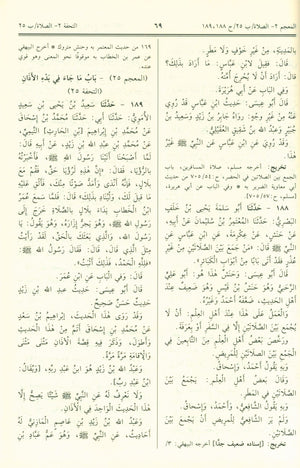 المعجم ٢- الصلاة/ب ٢٥، ح ١٨٨، ١٨٩
٦٩
التحفة ٢- الصلاة/ب ٢٥
بِالْمَدِينَةِ، مِنْ غَيْرِ خَوْفٍ وَلَا مَطَرٍ.
قَالَ: فَقِيلَ لابْنِ عَبَّاسٍ: مَا أَرَادَ بِذَلِكَ؟
قَالَ: أَرَادَ أَنْ لَا يُحْرِجَ أُمَّتَهُ.
وَفِي الْبَابِ عَنْ أَبِي هُرَيْرَةَ.
قَالَ أَبُو عِيسَى: حَدِيثُ ابْنِ عَبَّاسٍ قَدْ رُوِيَ
عَنْهُ مِنْ غَيْرِ وَجْهٍ: رَوَاهُ جَابِرُ بْنُ زَيْدٍ
وَسَعِيدُ بْنُ جُبَيْرٍ وَعَبْدُ اللهِ بْنُ شَقِيقٍ الْعُقَيْلِيُّ.
وَقَدْ رُوِيَ عَنِ ابْنِ عَبَّاسٍ عَنِ النَّبِيِّ ﷺ غَيْرُ
هَذَا.
١٨٨ - حَدَّثَنَا أَبُو سَلَمَةَ يَحْيَى بْنُ خَلَفٍ
الْبَصْرِيُّ: حَدَّثَنَا الْمُعْتَمِرُ بْنُ سُلَيْمَانَ عَنْ أَبِيهِ،
عَنْ حَنَشٍ، عَنْ عِكْرِمَةَ، عَنِ ابْنِ عَبَّاسٍ عَنِ
النَّبِيِّ ﷺ قَالَ: «مَنْ جَمَعَ بَيْنَ الصَّلَاتَيْنِ مِنْ غَيْرِ
عُذْرٍ فَقَدْ أَتَى بَابًا مِنْ أَبْوَابِ الْكَبَائِرِ».
قَالَ أَبُو عِيسَى: وَحَنَشٌ هَذَا هُوَ: أَبُو عَلِيٍّ
الرَّحَبِيُّ وَهُوَ حُسَيْنُ بْنُ قَيْسٍ وَهُوَ ضَعِيفٌ عِنْدَ
أَهْلِ الْحَدِيثِ، ضَعَّفَهُ أَحْمَدُ وَغَيْرُهُ.
وَالْعَمَلُ عَلَى هَذَا عِنْدَ أَهْلِ الْعِلْمِ: أَنْ لَا
يُجْمَعَ بَيْنَ الصَّلَاتَيْنِ إِلَّا فِي السَّفَرِ أَوْ بِعَرَفَةَ.
وَرَخَّصَ بَعْضُ أَهْلِ الْعِلْمِ مِنَ التَّابِعِينَ فِي
الْجَمْعِ بَيْنَ الصَّلَاتَيْنِ لِلْمَرِيضِ.
وَبِهِ يَقُولُ أَحْمَدُ، وَإِسْحَاقُ.
وَقَالَ بَعْضُ أَهْلِ الْعِلْمِ: يَجْمَعُ بَيْنَ
الصَّلَاتَيْنِ فِي الْمَطَرِ.
وَبِهِ يَقُولُ الشَّافِعِيُّ، وَأَحْمَدُ، وَإِسْحَاقُ.
وَلَمْ يَرَ الشَّافِعِيُّ لِلْمَرِيضِ أَنْ يَجْمَعَ بَيْنَ
الصَّلَاتَيْنِ.
تخريج: [إسناده ضعيف جدًا] أخرجه البيهقي: ٣/
١٦٩ من حديث المعتمر به وحنش متروك * أخرج البيهقي
عن عمر بن الخطاب به موقوفًا نحو المعنى وهو قوي
عنه.
(المعجم ٢٥) - بَابُ مَا جَاءَ فِي بَدْءِ الْأَذَانِ
(التحفة ٢٥)
١٨٩ - حَدَّثَنَا سَعِيدُ بْنُ يَحْيَى بْنِ سَعِيدٍ
الْأُمَوِيُّ: حَدَّثَنَا أَبِي: حَدَّثَنَا مُحَمَّدُ بْنُ إِسْحَاقَ
عَنْ مُحَمَّدِ بْنِ إِبْرَاهِيمَ [بْنِ الْحَارِثِ] التَّيْمِيِّ،
عَنْ مُحَمَّدِ بْنِ عَبْدِ اللهِ بْنِ زَيْدٍ، عَنْ أَبِيهِ قَالَ:
لَمَّا أَصْبَحْنَا أَتَيْنَا رَسُولَ اللهِ ﷺ، فَأَخْبَرْتُهُ
بِالرُّؤْيَا، فَقَالَ: «إِنَّ هَذِهِ لَرُؤْيَا حَقٍّ، فَقُمْ مَعَ
بِلَالٍ، فَإِنَّهُ أَنْدَى وَأَمَدُّ صَوْتًا مِنْكَ، فَأَلْقِ عَلَيْهِ
مَا قِيلَ لَكَ، وَلْيُنَادِ بِذَلِكَ» قَالَ: فَلَمَّا سَمِعَ عُمَرُ
ابْنُ الْخَطَّابِ نِدَاءَ بِلَالٍ بِالصَّلَاةِ خَرَجَ إِلَى
رَسُولِ اللهِ ﷺ، وَهُوَ يَجُرُّ إِزَارَهُ، وَهُوَ يَقُولُ: يَا
رَسُولَ اللهِ وَالَّذِي بَعَثَكَ بِالْحَقِّ، لَقَدْ رَأَيْتُ
مِثْلَ الَّذِي قَالَ، قَالَ: فَقَالَ رَسُولُ اللهِ ﷺ:
«فَلِلَّهِ الْحَمْدُ، فَذَلِكَ أَثْبَتُ».
قَالَ: وَفِي الْبَابِ عَنِ ابْنِ عُمَرَ.
قَالَ أَبُو عِيسَى: حَدِيثُ عَبْدِ اللهِ بْنِ زَيْدٍ
حَدِيثٌ حَسَنٌ صَحِيحٌ.
وَقَدْ رَوَى هَذَا الْحَدِيثَ إِبْرَاهِيمُ بْنُ سَعْدٍ
عَنْ مُحَمَّدِ بْنِ إِسْحَاقَ أَتَمَّ مِنْ هَذَا الْحَدِيثِ
وَأَطْوَلَ، وَذَكَرَ فِيهِ قِصَّةَ الْأَذَانِ مَثْنَى مَثْنَى
وَالْإِقَامَةِ مَرَّةً مَرَّةً.
وَعَبْدُ اللهِ بْنُ زَيْدٍ هُوَ ابْنُ عَبْدِ رَبِّهِ، [وَيُقَالُ:
ابْنُ عَبْدِ رَبٍّ].
وَلَا نَعْرِفُ لَهُ عَنِ النَّبِيِّ ﷺ شَيْئًا يَصِحُّ إِلَّا
هَذَا الْحَدِيثَ الْوَاحِدَ فِي الْأَذَانِ.
وَعَبْدُ اللهِ بْنُ زَيْدِ بْنِ عَاصِمٍ الْمَازِنِيُّ لَهُ
أَحَادِيثُ عَنِ النَّبِيِّ ﷺ، وَهُوَ عَمُّ عَبَّادِ بْنِ